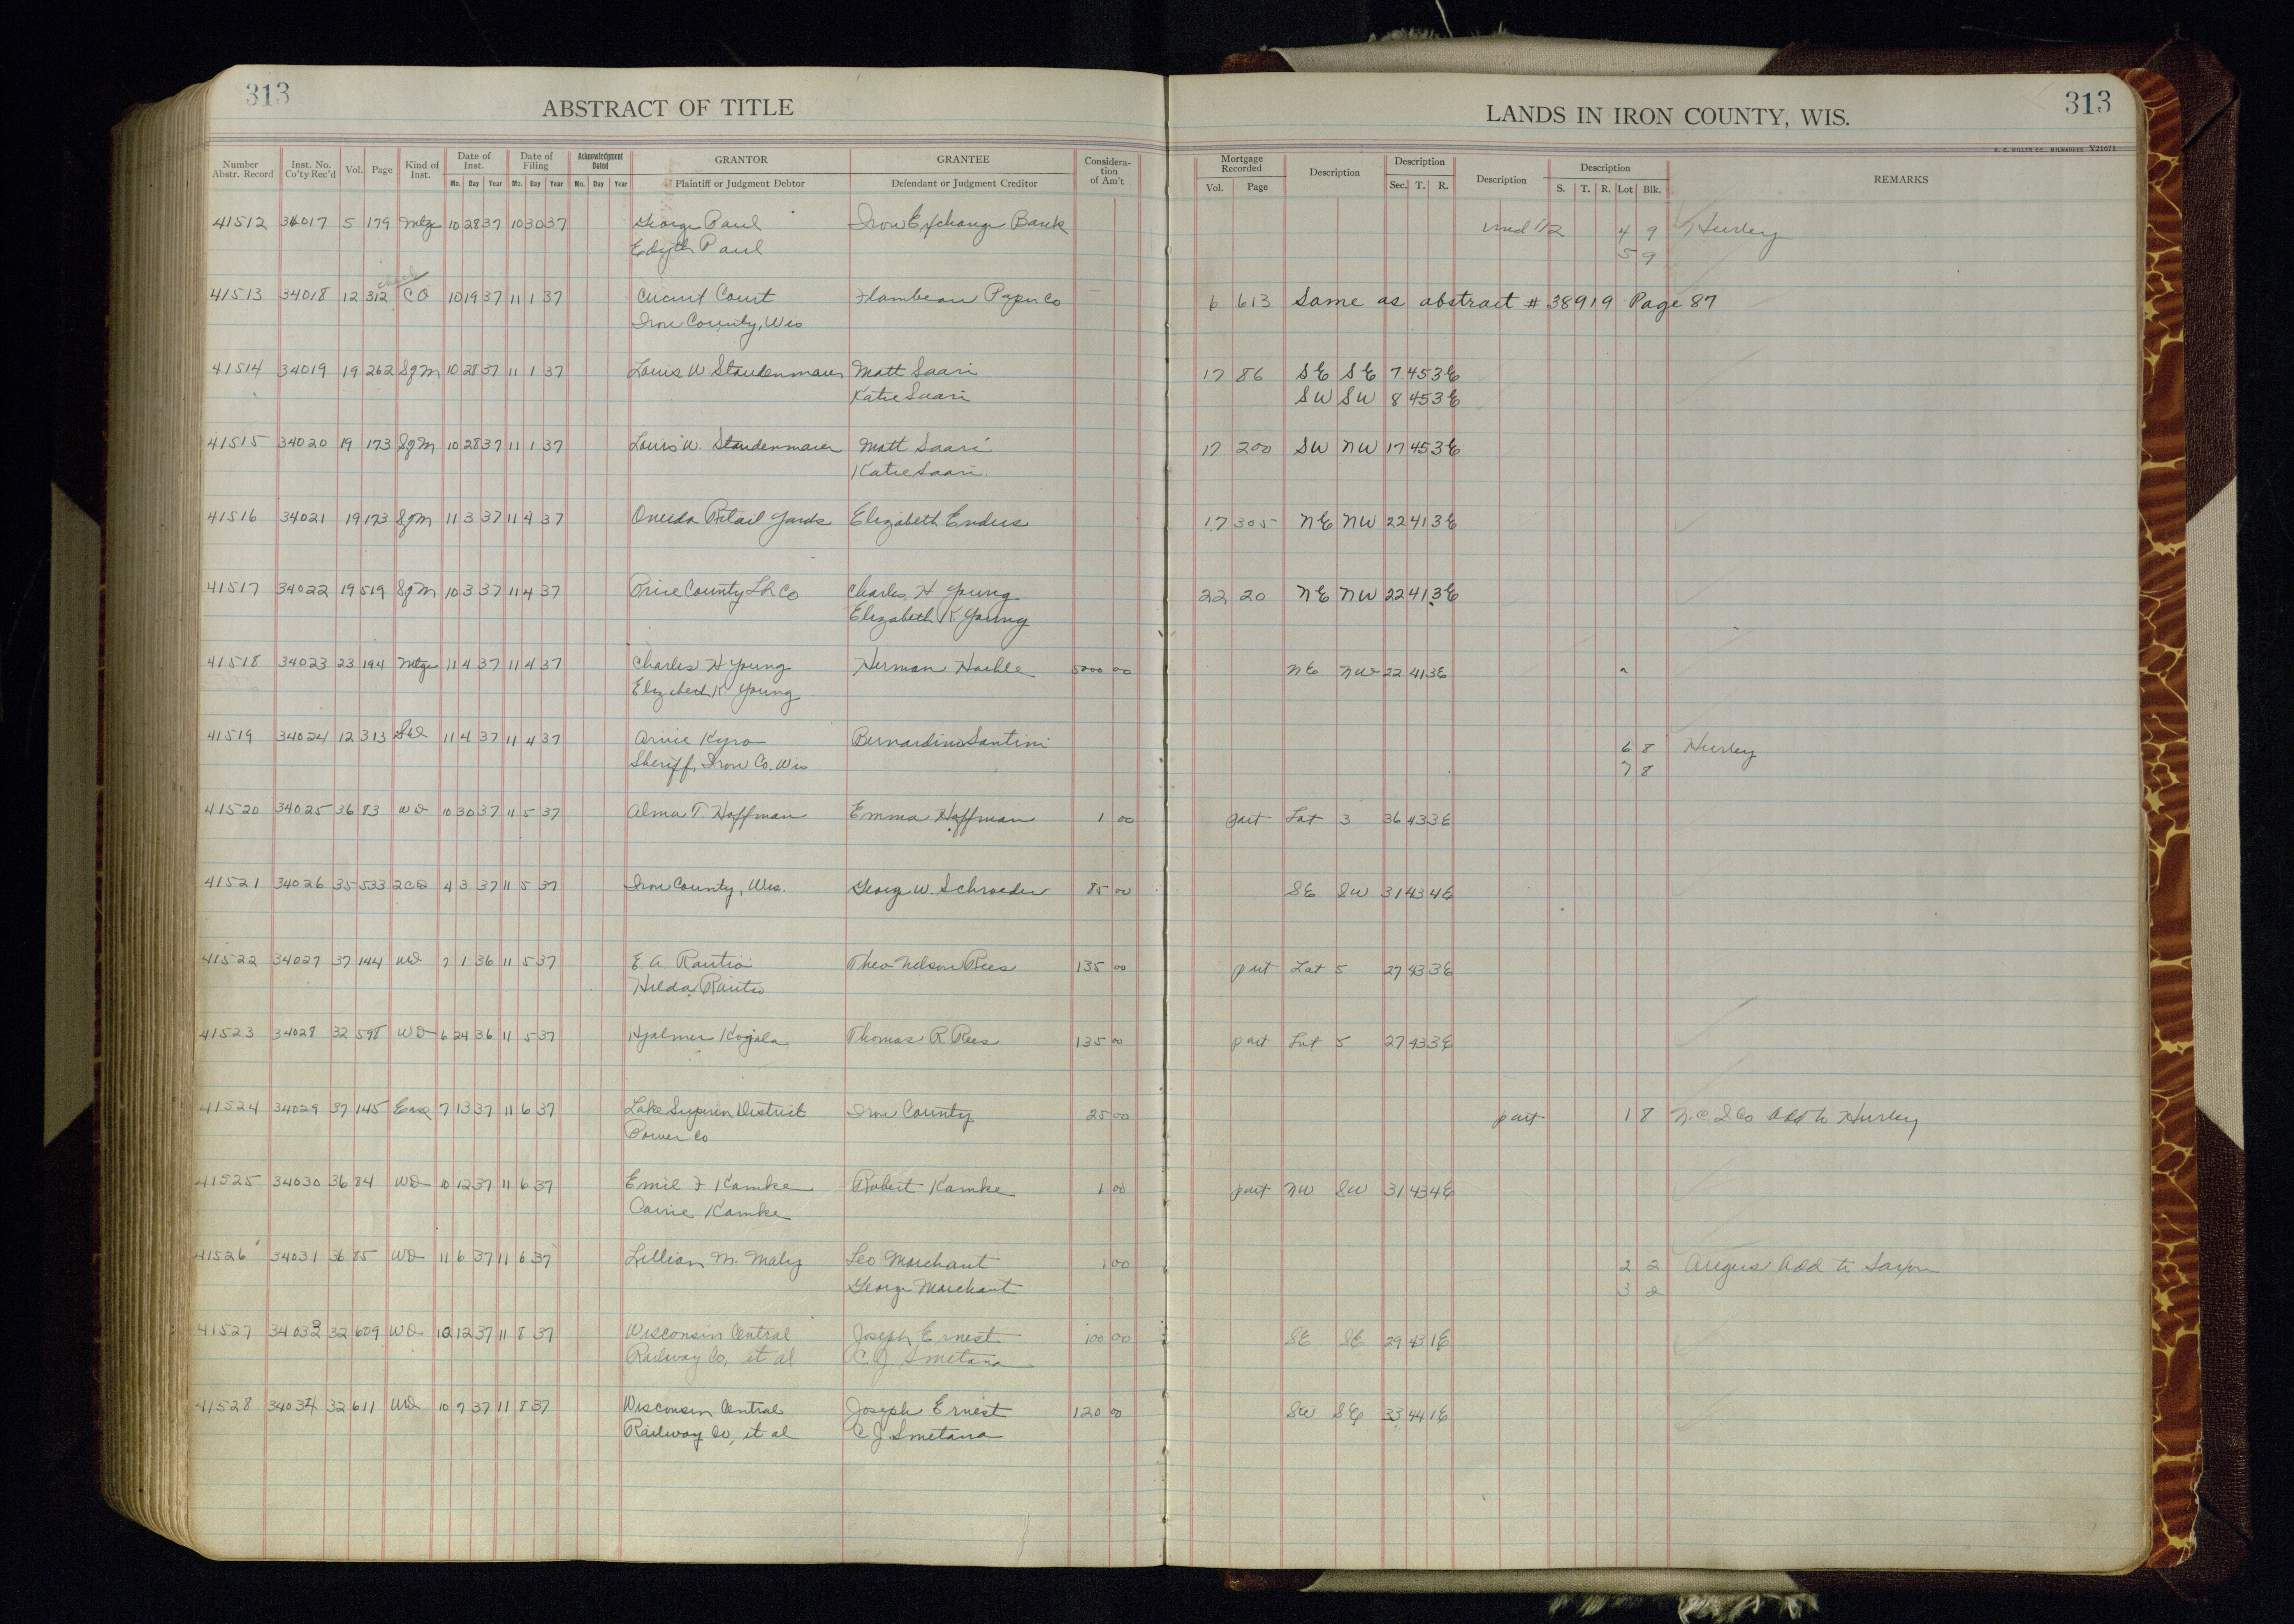 313
ABSTRACT OF TITLE
LANDS IN IRON COUNTY, WIS.
313
H. C. MILLER CO., MILWAUKEE Y21671
Number Abstr. Record | Inst. No. Co'ty Rec'd | Vol. | Page | Kind of Inst. | Date of Inst. Mo. Day Year | Date of Filing Mo. Day Year | Acknowledgment Dated Mo. Day Year | GRANTOR Plaintiff or Judgment Debtor | GRANTEE Defendant or Judgment Creditor | Considera-tion of Am't | Mortgage Recorded Vol. Page | Description | Description Sec. T. R. | Description | Description S. T. R. Lot Blk. | REMARKS
41512 34017 5 179 Mtge 10 28 37 10 30 37 George Paul Iron Exchange Bank und 1/2 4 9 Hurley
Edyth Paul 5 9
41513 34018 12 312 CO 10 19 37 11 1 37 Circuit Court Flambeau Paper Co 6 613 Same as abstract # 38919 Page 87
Iron County, Wis
41514 34019 19 262 SgM 10 28 37 11 1 37 Louis W Staudenmaier Matt Saari 17 86 SE SE 7 45 3E
Katie Saari SW SW 8 45 3E
41515 34020 19 173 SgM 10 28 37 11 1 37 Louis W. Staudenmaier Matt Saari 17 200 SW NW 17 45 3E
Katie Saari
41516 34021 19 173 SgM 11 3 37 11 4 37 Oneida Retail Yards Elizabeth Enders 17 305 NE NW 22 41 3E
41517 34022 19 519 SgM 10 3 37 11 4 37 Price County Co Charles H Young 22 20 NE NW 22 41 3E
Elizabeth K. Young
41518 34023 23 194 Mtge 11 4 37 11 4 37 Charles H Young Herman 5000 00 NE NW 22 41 3E
Elizabeth K Young
41519 34024 12 313 ShD 11 4 37 11 4 37 Arvie Kyro Bernardino Santini 6 8 Hurley
Sheriff, Iron Co. Wis 7 8
41520 34025 36 83 WD 10 30 37 11 5 37 Alma T. Hoffman Emma Hoffman 1 00 part Lot 3 36 43 3E
41521 34026 35 533 2CD 4 3 37 11 5 37 Iron County, Wis. George W. Schroeder 85 00 SE SW 31 43 4E
41522 34027 37 144 WD 7 1 36 11 5 37 E. A. Rautio Theo Nelson Rees 135 00 part Lot 5 27 43 3E
Hilda Rautio
41523 34028 32 598 WD 6 24 36 11 5 37 Hjalmer Kojala Thomas R Rees 135 00 part Lot 5 27 43 3E
41524 34029 37 145 Ease 7 13 37 11 6 37 Lake Superior District Iron County 25 00 part 1 8 N.C.D Co Add to Hurley
Power Co
41525 34030 36 84 WD 10 12 37 11 6 37 Emil F Kamke Robert Kamke 1 00 part NW SW 31 43 4E
Carrie Kamke
41526 34031 36 85 WD 11 6 37 11 6 37 Lillian M. Maly Leo Marchant 1 00 2 2 Angus Add to Saxon
George Marchant 3 2
41527 34032 32 609 WD 10 12 37 11 8 37 Wisconsin Central Joseph Ernest 100 00 SE SE 29 43 1E
Railway Co, et al C. J. Smetana
41528 34034 32 611 WD 10 7 37 11 8 37 Wisconsin Central Joseph Ernest 120 00 SW SE 33 44 1E
Railway Co, et al C J Smetana